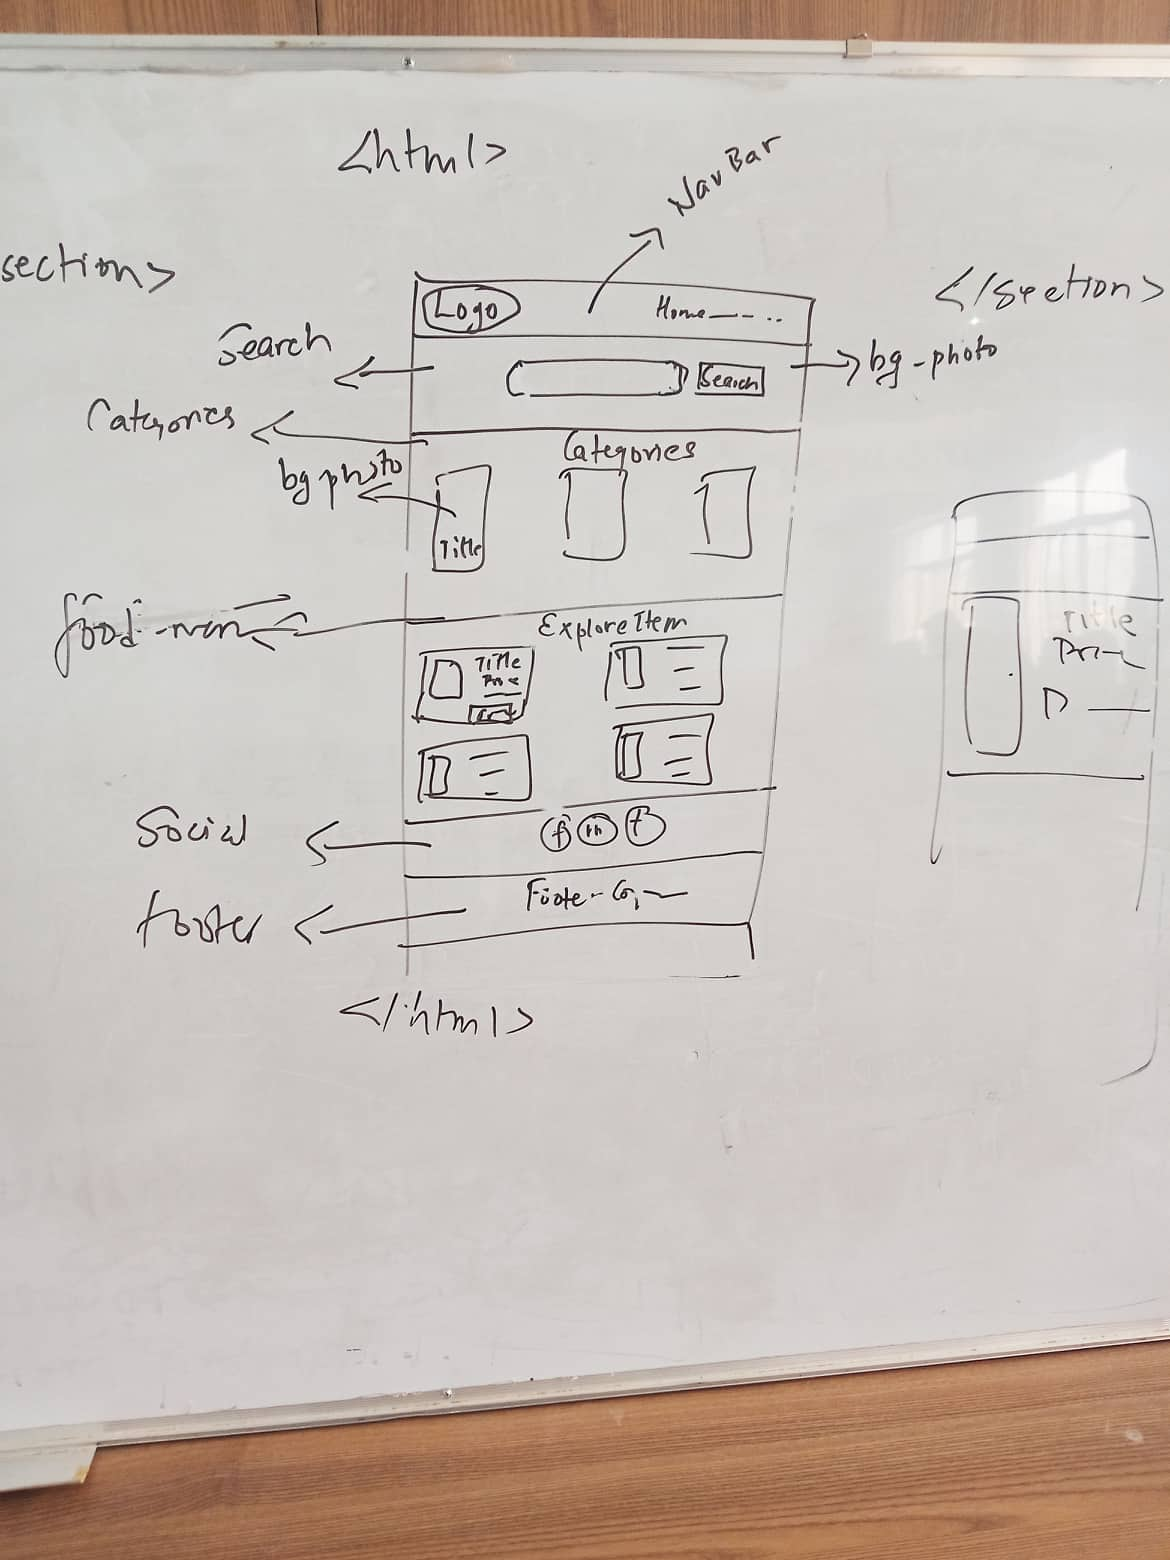 <html>
NavBar
section>
</section>
Logo
Home
Search
bg-photo
Search
Categories
Categories
bg photo
Title
food-men
Explore Item
Title
Title
Social
f in t
footer
Footer-
</html>